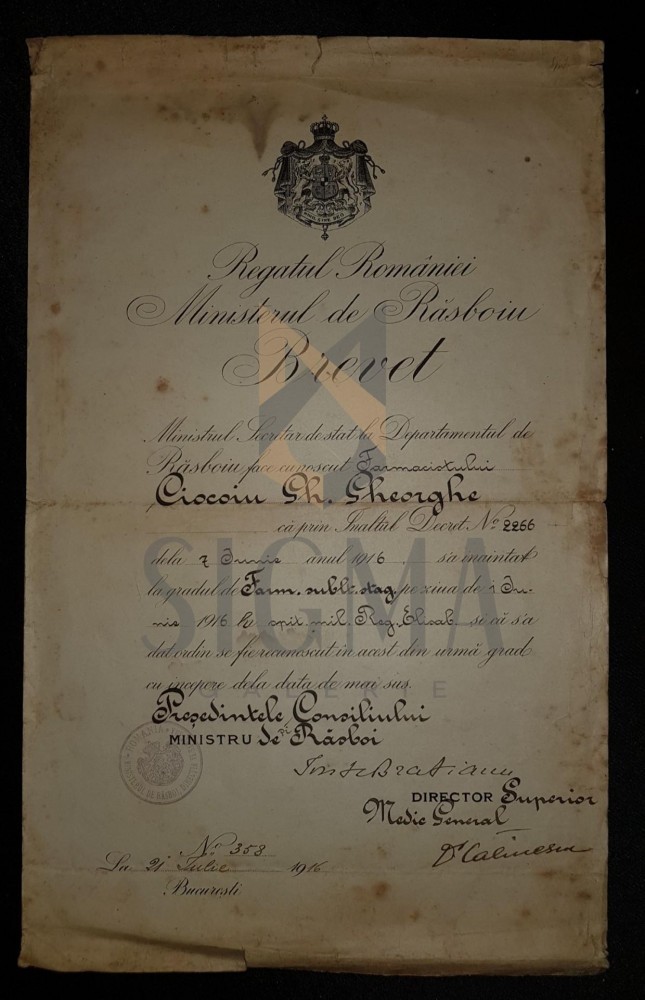 Regatul României
Ministerul de Răsboiu
Brevet
Ministrul Secretar de stat la Departamentul de
Răsboiu face cunoscut Farmacistului
Ciocoiu Gh. Gheorghe
că prin Inaltul Decret No 2266
dela 7 Iunie anul 1916 s'a inaintat
la gradul de Farm. sublt. stag. pe ziua de 1 Iu-
nie 1916 la spit. mil. Reg. Elisab. si că s'a
dat ordin se fie recunoscut in acest din urmă grad
cu incepere dela data de mai sus.
SIGMA
GALERIE
Preşedintele Consiliului
MINISTRU de Răsboi
DIRECTOR Superior
Medic General
Dr Calinescu
No 358
La 21 Iulie 1916
Bucuresti